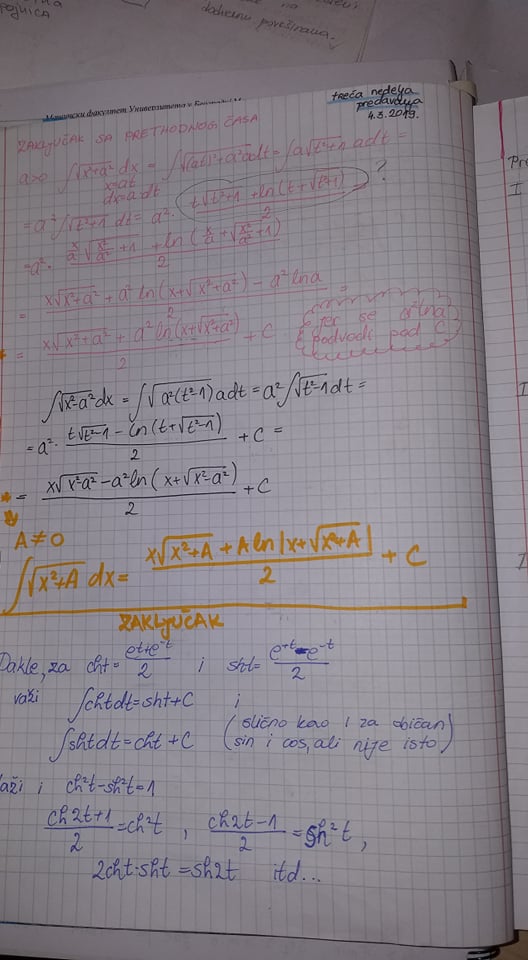 površinama.
Математички факултет Универзитета у
treća nedelja
predavanja
4.3.2019.
ZAKLJUČAK SA PRETHODNOG ČASA
a>0 ∫√(x²+a²) dx = ∫√((at)²+a²) adt = ∫a√(t²+1) adt =
x=at
dx=a dt
= a²∫√(t²+1) dt = a² · (t√(t²+1) + ln(t+√(t²+1)))/2 = ?
= a² · (x/a √(x²/a²+1) + ln(x/a+√(x²/a²+1)))/2
= (x√(x²+a²) + a² ln(x+√(x²+a²)) - a² ln a)/2 =
= (x√(x²+a²) + a² ln(x+√(x²+a²)))/2 + C
jer se a²lna
podvodi pod C
∫√(x²-a²)dx = ∫√(a²(t²-1)) adt = a²∫√(t²-1) dt =
= a² · (t√(t²-1) - ln(t+√(t²-1)))/2 + C =
= (x√(x²-a²) - a²ln(x+√(x²-a²)))/2 + C
A≠0
∫√(x²+A) dx = (x√(x²+A) + A ln|x+√(x²+A)|)/2 + C
ZAKLJUČAK
Dakle, za cht = (e^t+e^-t)/2 i sht = (e^+t-e^-t)/2
važi ∫chtdt=sht+C i
∫shtdt=cht+C (slično kao i za običan sin i cos, ali nije isto)
Važi i ch²t-sh²t=1
(ch2t+1)/2=ch²t , (ch2t-1)/2=sh²t ,
2cht·sht=sh2t itd...